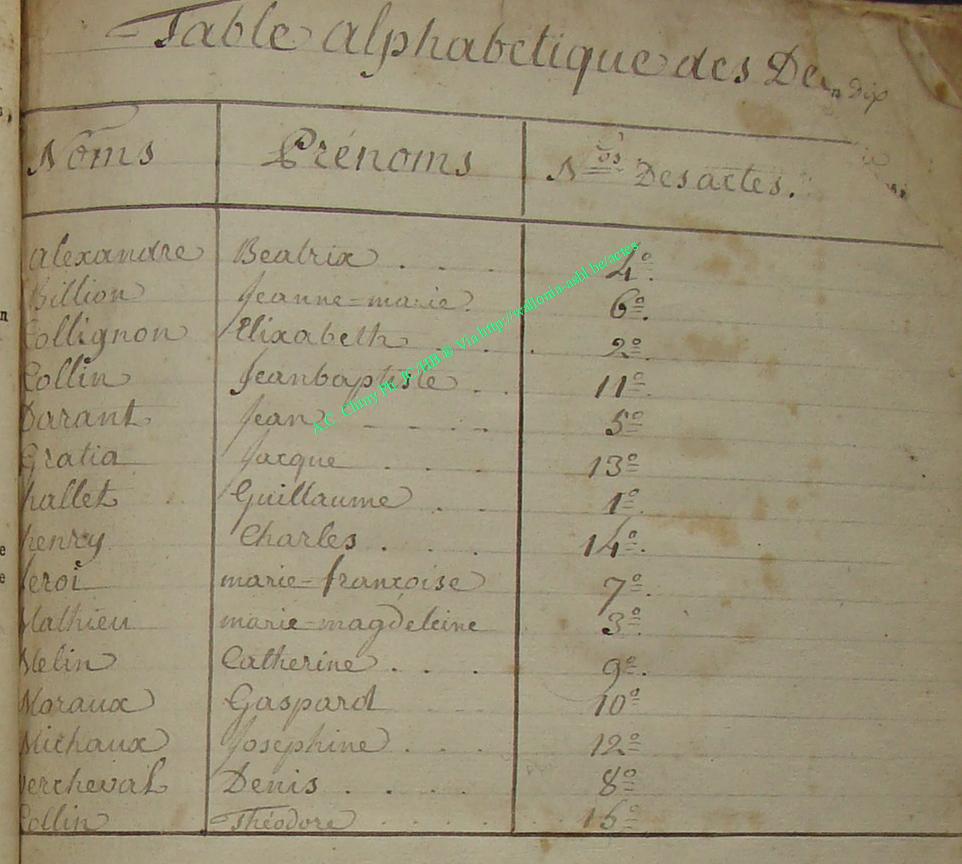 Table alphabetique des De
Noms Prénoms Nos Des actes.
alexandre Beatrix . . . 4º.
Billion Jeanne=marie. 6º.
Collignon Elixabeth . . . 2º.
Collin Jeanbaptiste . . 11º.
Darant Jean . . . . 5º.
Gratia Jacque . . . 13º.
hallet Guillaume . . 1º.
henry Charles . . . 14º.
leroi marie=françoise 7º.
Mathieu marie=magdeleine 3º.
Melin Catherine . . . 9º.
Moraux Gaspard 10º
Michaux Josephine . . . 12º
vercheval Denis . . . . 8º
Collin Théodore . . . . 15º
A.C. Chiny Ph. JC/HB ® Via http://wallonia-asbl.be/actes